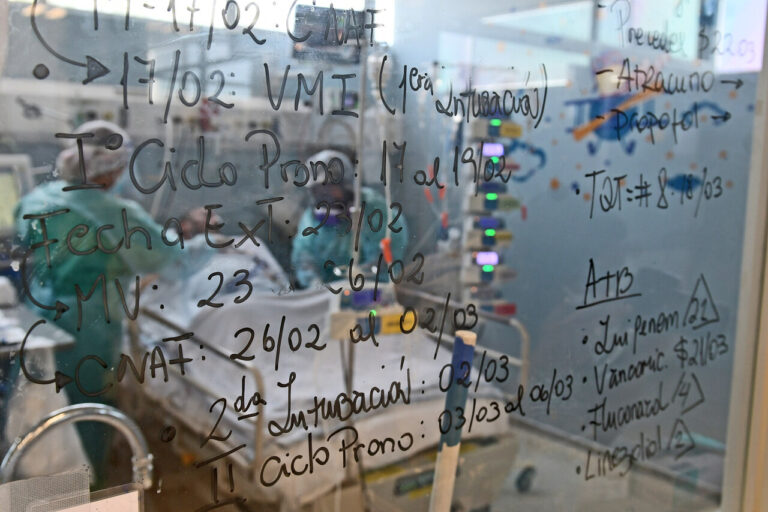 11-17/02: CNAF
17/02: VMI (1era Intubación)
I° Ciclo Prono: 17 al 19/02
Fecha Ext: 23/02
MV: 23 26/02
CNAF: 26/02 al 02/03
2da Intubación: 02/03
II ciclo Prono: 03/03 al 06/03
Precedex $22.03
- Atracurio →
- Propofol →
TQT=# 8. 18/03
ATB
Imipenem /21
Vancomic. $21/03
Fluconazol /4
Linezolid /2